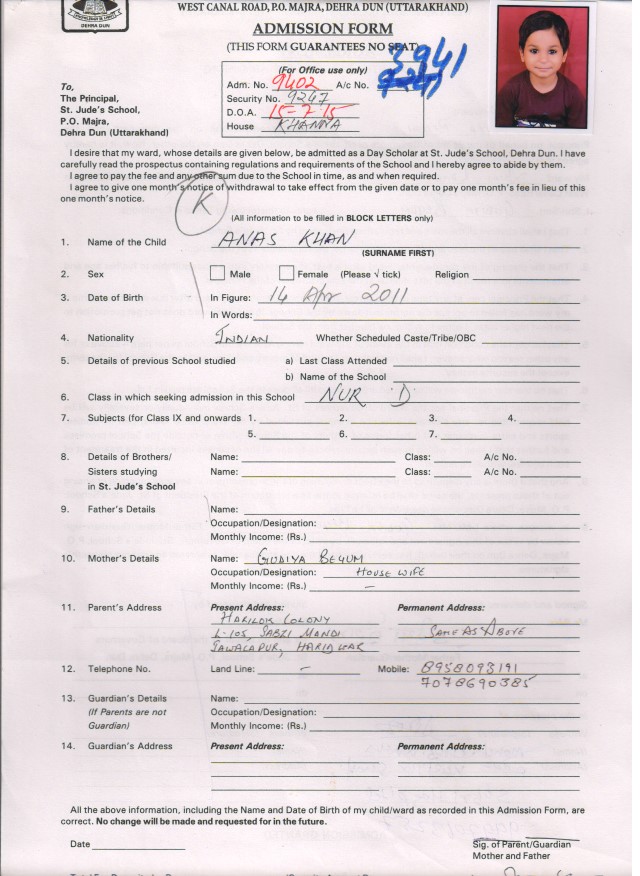 DEHRA DUN
WEST CANAL ROAD, P.O. MAJRA, DEHRA DUN (UTTARAKHAND)
ADMISSION FORM
(THIS FORM GUARANTEES NO SEAT)
3941
(For Office use only)
Adm. No. 9402 A/c No.
Security No. 9247
D.O.A. 15-2-15
House KHANNA
To,
The Principal,
St. Jude's School,
P.O. Majra,
Dehra Dun (Uttarakhand)
I desire that my ward, whose details are given below, be admitted as a Day Scholar at St. Jude's School, Dehra Dun. I have
carefully read the prospectus containing regulations and requirements of the School and I hereby agree to abide by them.
I agree to pay the fee and any other sum due to the School in time, as and when required.
I agree to give one month's notice of withdrawal to take effect from the given date or to pay one month's fee in lieu of this
one month's notice.
K
(All information to be filled in BLOCK LETTERS only)
1. Name of the Child ANAS KHAN
(SURNAME FIRST)
2. Sex Male Female (Please √ tick) Religion
3. Date of Birth In Figure: 14 Apr 2011
In Words:
4. Nationality INDIAN Whether Scheduled Caste/Tribe/OBC
5. Details of previous School studied a) Last Class Attended
b) Name of the School
6. Class in which seeking admission in this School NUR 'D'
7. Subjects (for Class IX and onwards 1. 2. 3. 4.
5. 6. 7.
8. Details of Brothers/ Name: Class: A/c No.
Sisters studying Name: Class: A/c No.
in St. Jude's School
9. Father's Details Name:
Occupation/Designation:
Monthly Income: (Rs.)
10. Mother's Details Name: GUDIYA BEGUM
Occupation/Designation: HOUSE WIFE
Monthly Income: (Rs.) –
11. Parent's Address Present Address: Permanent Address:
HARILOK COLONY
L-105, SABZI MANDI SAME AS ABOVE
JAWALAPUR, HARIDWAR
12. Telephone No. Land Line: – Mobile: 8958093191
7078690385
13. Guardian's Details Name:
(If Parents are not Occupation/Designation:
Guardian) Monthly Income: (Rs.)
14. Guardian's Address Present Address: Permanent Address:
All the above information, including the Name and Date of Birth of my child/ward as recorded in this Admission Form, are
correct. No change will be made and requested for in the future.
Date Sig. of Parent/Guardian
Mother and Father